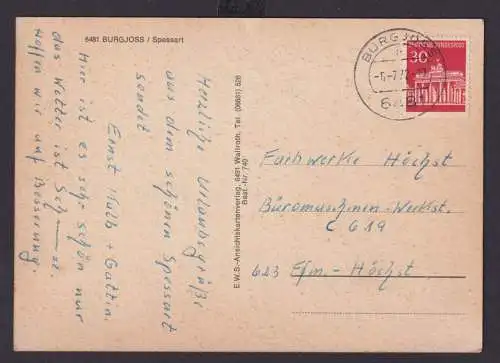 6481 BURGJOSS / Spessart
Herzliche Urlaubsgrüße
aus dem schönen Spessart
sendet
Ernst + Gattin.
Hier ist es sehr schön nur
das Wetter ist Sch——se.
Hoffen wir auf Besserung.
E.W.S.-Ansichtskartenverlag, 6491 Wallroth, Tel. (06661) 526
Best.-Nr. 740
BURGJOSS
DEUTSCHE BUNDESPOST
30
Fachwerke Höchst
Büromaschinen-Werkst.
C 619
623 Ffm.-Höchst